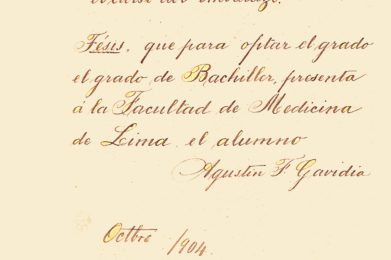 Tésis, que para optar el grado
el grado de Bachiller, presenta
á la Facultad de Medicina
de Lima el alumno
Agustín F Gavidia
Octbre /904.